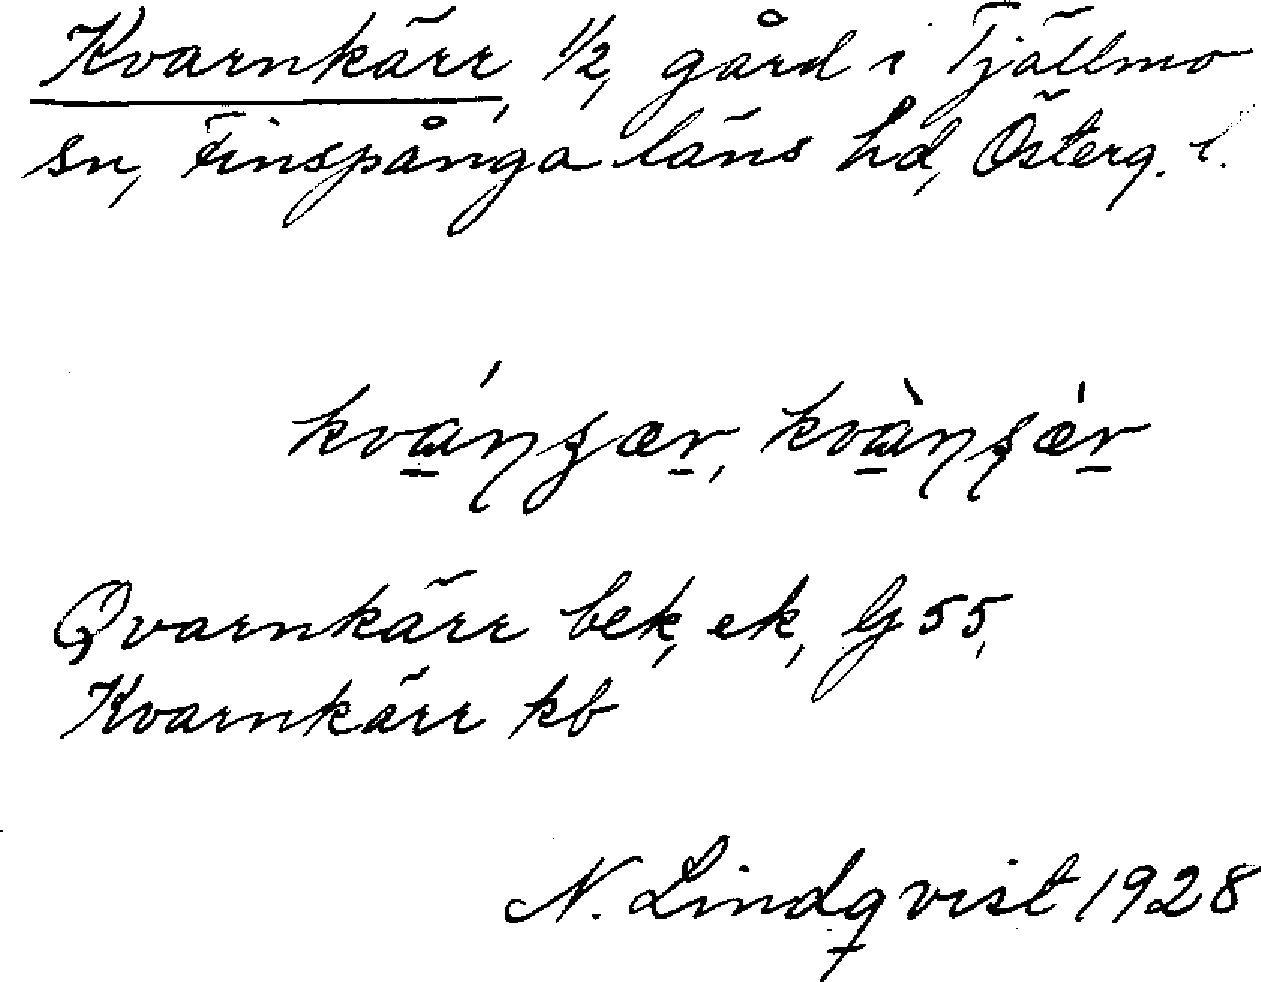 Kvarnkärr, 1/2, gård i Tjällmo
sn, Finspånga läns hd, Österg. l.
Qvarnkärr bek, ek, G 55,
Kvarnkärr kb
N. Lindqvist 1928